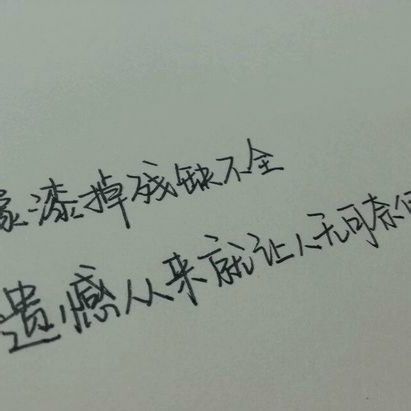 漆掉残缺不全
遗憾从来就让人无可奈何